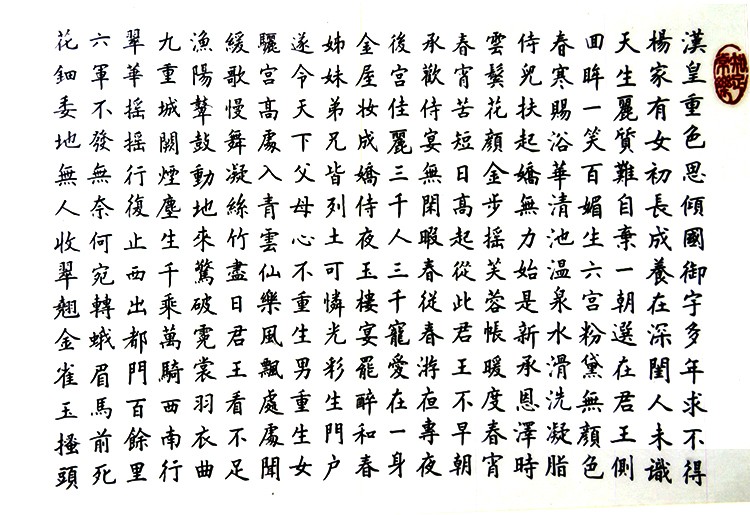 漢皇重色思傾國御宇多年求不得
楊家有女初長成養在深閨人未識
天生麗質難自棄一朝選在君王側
回眸一笑百媚生六宮粉黛無顏色
春寒賜浴華清池温泉水滑洗凝脂
侍兒扶起嬌無力始是新承恩澤時
雲鬢花顏金步摇芙蓉帳暖度春宵
春宵苦短日高起從此君王不早朝
承歡侍宴無閑暇春從春游夜專夜
後宮佳麗三千人三千寵愛在一身
金屋妝成嬌侍夜玉樓宴罷醉和春
姊妹弟兄皆列土可憐光彩生門户
遂令天下父母心不重生男重生女
驪宮高處入青雲仙樂風飄處處聞
緩歌慢舞凝絲竹盡日君王看不足
漁陽鼙鼓動地來驚破霓裳羽衣曲
九重城闕煙塵生千乘萬騎西南行
翠華摇摇行復止西出都門百餘里
六軍不發無奈何宛轉蛾眉馬前死
花鈿委地無人收翠翹金雀玉搔頭